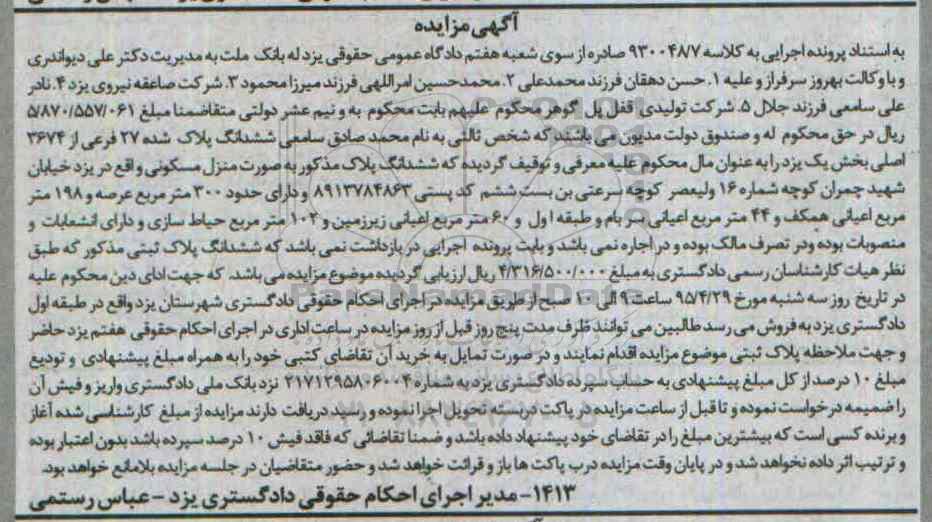 آگهی مزایده
به استناد پرونده اجرایی به کلاسه ۹۳۰۰۴۸/۷ صادره از سوی شعبه هفتم دادگاه عمومی حقوقی یزد له بانک ملت به مدیریت دکتر علی دیواندری
و با وکالت بهروز سرفراز و علیه ۱. حسن دهقان فرزند محمدعلی ۲. محمدحسین امراللهی فرزند میرزا محمود ۳. شرکت صاعقه نیروی یزد ۴. نادر
علی سامعی فرزند جلال ۵. شرکت تولیدی قفل پل گوهر محکوم علیهم بابت محکوم به و نیم عشر دولتی متقاضمنا مبلغ ۵/۸۷۰/۵۵۷/۰۶۱
ریال در حق محکوم له و صندوق دولت مدیون می باشند که شخص ثالثی به نام محمد صادق سامعی ششدانگ پلاک شده ۲۷ فرعی از ۳۶۷۴
اصلی بخش یک یزد را به عنوان مال محکوم علیه معرفی و توقیف گردیده که ششدانگ پلاک مذکور به صورت منزل مسکونی واقع در یزد خیابان
شهید چمران کوچه شماره ۱۶ ولیعصر کوچه سرعتی بن بست ششم کد پستی ۸۹۱۳۷۸۴۸۶۳ و دارای حدود ۳۰۰ متر مربع عرصه و ۱۹۸ متر
مربع اعیانی همکف و ۴۴ متر مربع اعیانی خر بام و طبقه اول و ۶۰ متر مربع اعیانی زیرزمین و ۱۰۲ متر مربع حیاط سازی و دارای انشعابات و
منصوبات بوده ودر تصرف مالک بوده و در اجاره نمی باشد و بابت پرونده اجرایی در بازداشت نمی باشد که ششدانگ پلاک ثبتی مذکور که طبق
نظر هیات کارشناسان رسمی دادگستری به مبلغ ۴/۳۱۶/۵۰۰/۰۰۰ ریال ارزیابی گردیده موضوع مزایده می باشد. که جهت ادای دین محکوم علیه
در تاریخ روز سه شنبه مورخ ۹۵/۴/۲۹ ساعت ۹ الی ۱۰ صبح از طریق مزایده در اجرای احکام حقوقی دادگستری شهرستان یزد واقع در طبقه اول
دادگستری یزد به فروش می رسد طالبین می توانند ظرف مدت پنج روز قبل از روز مزایده در ساعت اداری در اجرای احکام حقوقی هفتم یزد حاضر
و جهت ملاحظه پلاک ثبتی موضوع مزایده اقدام نمایند و در صورت تمایل به خرید آن تقاضای کتبی خود را به همراه مبلغ پیشنهادی و تودیع
مبلغ ۱۰ درصد از کل مبلغ پیشنهادی به حساب سپرده دادگستری یزد به شماره ۲۱۷۱۲۹۵۸۰۶۰۰۴ نزد بانک ملی دادگستری واریز و فیش آن
را ضمیمه درخواست نموده و تا قبل از ساعت مزایده در پاکت دربسته تحویل اجرا نموده و رسید دریافت دارند مزایده از مبلغ کارشناسی شده آغاز
و برنده کسی است که بیشترین مبلغ را در تقاضای خود پیشنهاد داده باشد و ضمنا تقاضائی که فاقد فیش ۱۰ درصد سپرده باشد بدون اعتبار بوده
و ترتیب اثر داده نخواهد شد و در پایان وقت مزایده درب پاکت ها باز و قرائت خواهد شد و حضور متقاضیان در جلسه مزایده بلامانع خواهد بود.
۱۴۱۳- مدیر اجرای احکام حقوقی دادگستری یزد - عباس رستمی